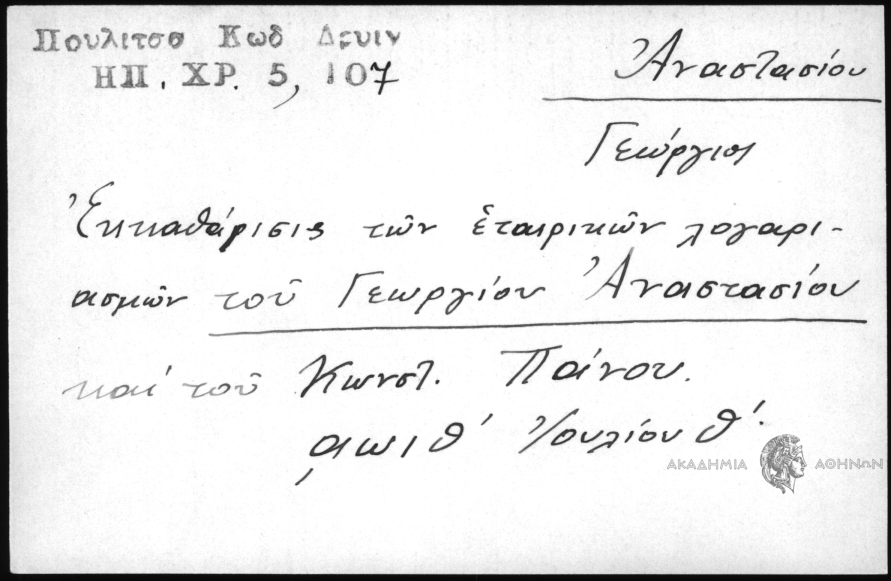 Πουλιτσα Κωδ Δρυιν
ΗΠ. ΧΡ. 5, 107
Ἀναστασίου
Γεώργιος
Ἐκκαθάρισις τῶν ἑταιρικῶν λογαρι-
ασμῶν τοῦ Γεωργίου Ἀναστασίου
καί τοῦ Κωνστ. Πάνου.
͵αωιθ' Ἰουλίου θ'.
ΑΚΑΔΗΜΙΑ ΑΘΗΝΩΝ